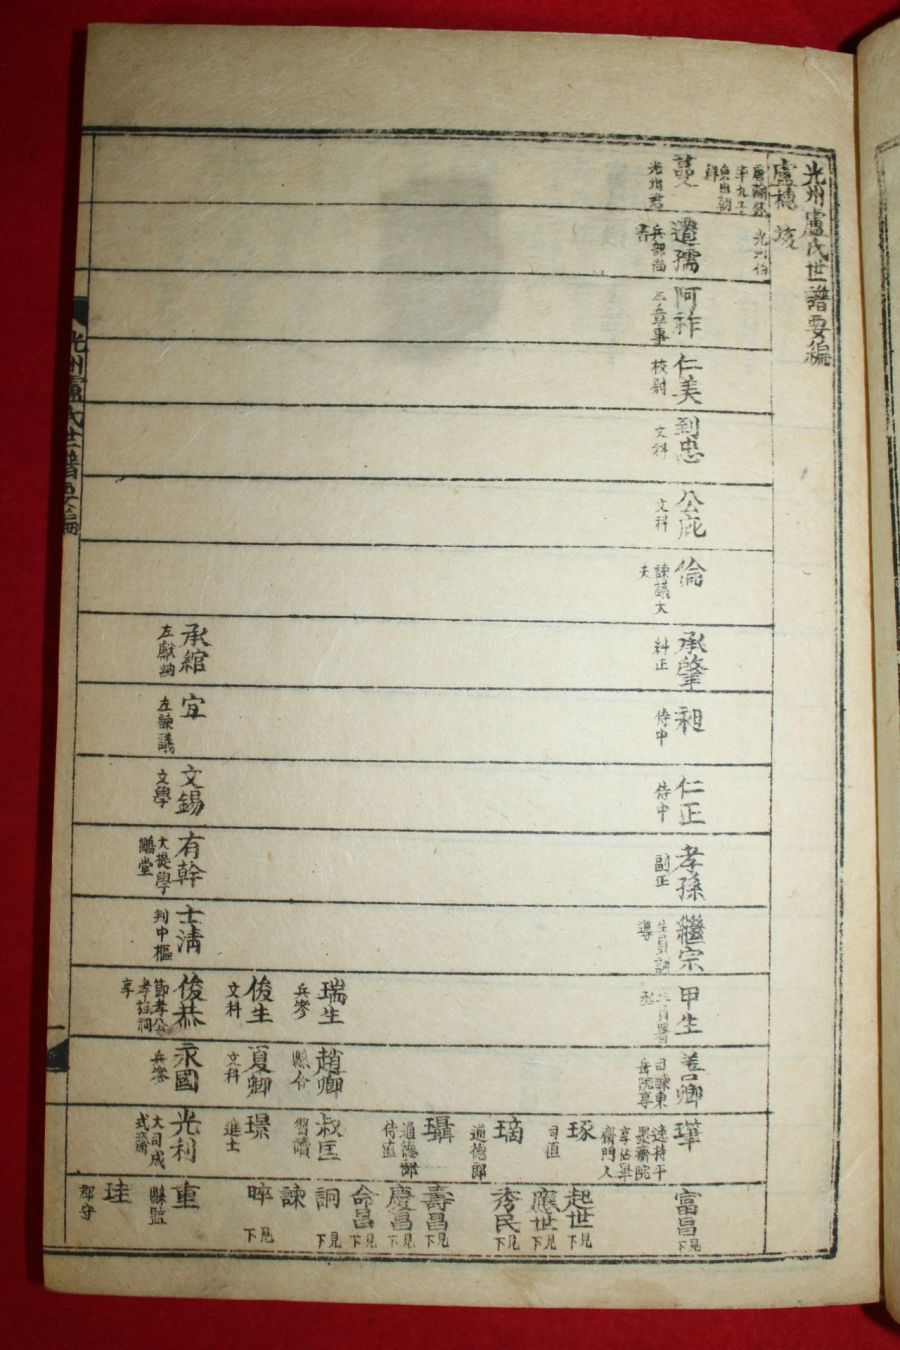 光州盧氏世譜要編
盧穗
光州伯
蔓
光州君
遣孺
兵部尚書
阿祚
平章事
仁美
校尉
到忠
文科
公庇
文科
倫
諫議大夫
承肇
糾正
承綰
左獻納
昶
侍中
宜
左諫議
仁正
侍中
文錫
文學
孝孫
副正
有幹
大提學
鵬堂
繼宗
生員訓導
士淸
判中樞
甲生
瑞生
兵參
俊生
文科
俊恭
節孝公
孝莊祠享
善卿
司諫東岳院享
趙卿
縣令
夏卿
文科
永國
兵參
琢
司直
通德郎
通德郎
侍直
叔匡
習讀
璟
進士
光利
大司成
式齋
富昌 見下
起世 見下
應世 見下
秀民 見下
壽昌 見下
慶昌 見下
命昌 見下
詗 見下
諫
晬 見下
重
縣監
珪
郡守
光州盧氏世譜要編